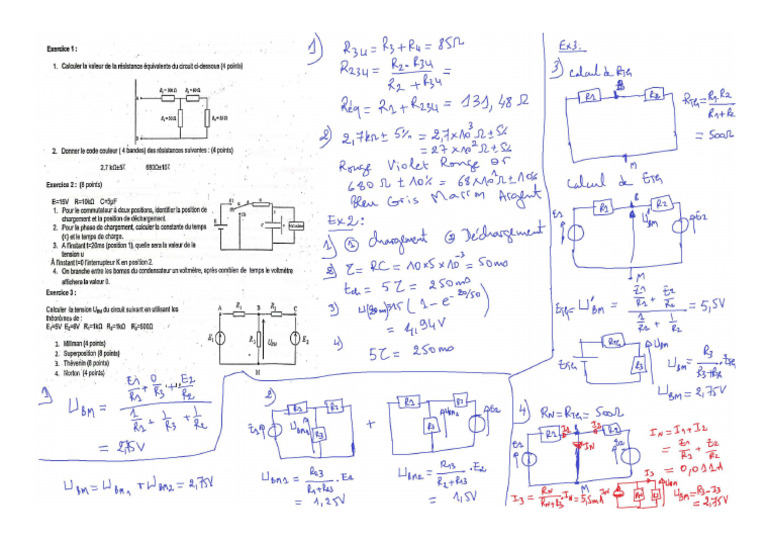 Exercice 1 :
1. Calculer la valeur de la résistance équivalente du circuit ci-dessous (4 points)
2. Donner le code couleur ( 4 bandes) des résistances suivantes : (4 points)
2,7 kΩ±5% 680Ω±
Exercice 2 : (8 points)
E=15V R=10kΩ C=5µF
1. Pour le commutateur à deux positions, identifier la position de
chargement et la position de déchargement.
2. Pour le phase de chargement, calculer la constante du temps
(τ) et le temps de charge.
3. A l'instant t=20ms (position 1), quelle sera la valeur de la
tension u
À l'instant t=0 l'interrupteur K en position 2.
4. On branche entre les bornes du condensateur un voltmètre, après combien de temps le voltmètre
affichera la valeur 0.
Exercice 3 :
Calculer la tension UBM du circuit suivant en utilisant les
théorèmes de :
E1=5V E2=6V R1=1kΩ R2=1kΩ R3=500Ω
1. Millman (4 points)
2. Superposition (8 points)
3. Thévenin (8 points)
4. Norton (4 points)
A R1 B R2 C
E1 R3 UBM E2
M
1) R34 = R3 + R4 = 85Ω
R234 = R2 . R34 / R2 + R34 =
Réq = R1 + R234 = 131,48 Ω
2) 2,7kΩ ± 5% = 2,7×10³ Ω ± 5%
= 27×10² Ω ± 5%
Rouge Violet Rouge or
680 Ω ± 10% = 68×10¹ Ω ± 10%
Bleu Gris Marron Argent
Ex2:
1) ① chargement ② Déchargement
2) τ = RC = 10×5×10⁻³ = 50ms
tch = 5τ = 250ms
3) u(20ms) = 15 ( 1 - e^-20/50 )
= 4,94V
4) 5τ = 250ms
Ex3:
1) UBM = (E1/R1 + 0/R3 + E2/R2) / (1/R1 + 1/R3 + 1/R2)
= 2,75V
2)
E1 R1 R2 UBM1 R3 + R1 R2 R3 UBM2 E2
UBM1 = R23 / R1+R23 . E1
= 1,25V
UBM2 = R13 / R2+R13 . E2
= 1,5V
UBM = UBM1 + UBM2 = 2,75V
3) calcul de RTH
R1 B R2
M
RTH = R1 R2 / R1 + R2
= 500Ω
calcul de ETH
E1 R1 B R2 U'BM E2
M
ETH = U'BM = (E1/R1 + E2/R2) / (1/R1 + 1/R2) = 5,5V
ETH RTH R3 UBM
UBM = R3 / R3+RTH . ETH
UBM = 2,75V
4) RN = RTH = 500Ω
E1 R1 I1 I2 R2 IN E2
M
IN = I1 + I2
= E1/R1 + E2/R2
= 0,011A
I3 = RN / RN+R3 . IN = 5,5mA
IN RN R3 I3 UBM
UBM = R3 . I3
= 2,75V